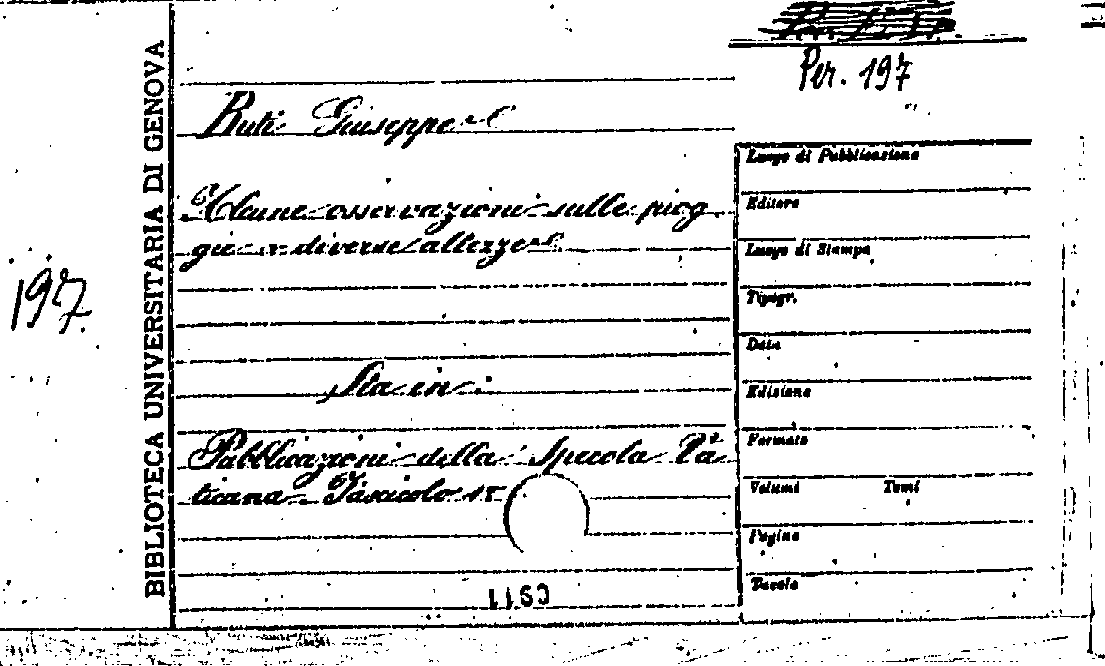 Per. 197
BIBLIOTECA UNIVERSITARIA DI GENOVA
197.
Buti Giuseppe
Alcune osservazioni sulle piog
gie a diverse altezze
Sta in:
Pubblicazioni della Specola Va
ticana Fascicolo
Luogo di Pubblicazione
Editore
Luogo di Stampa
Tipogr.
Data
Edizione
Formato
Volumi Tomi
Pagine
Tavole